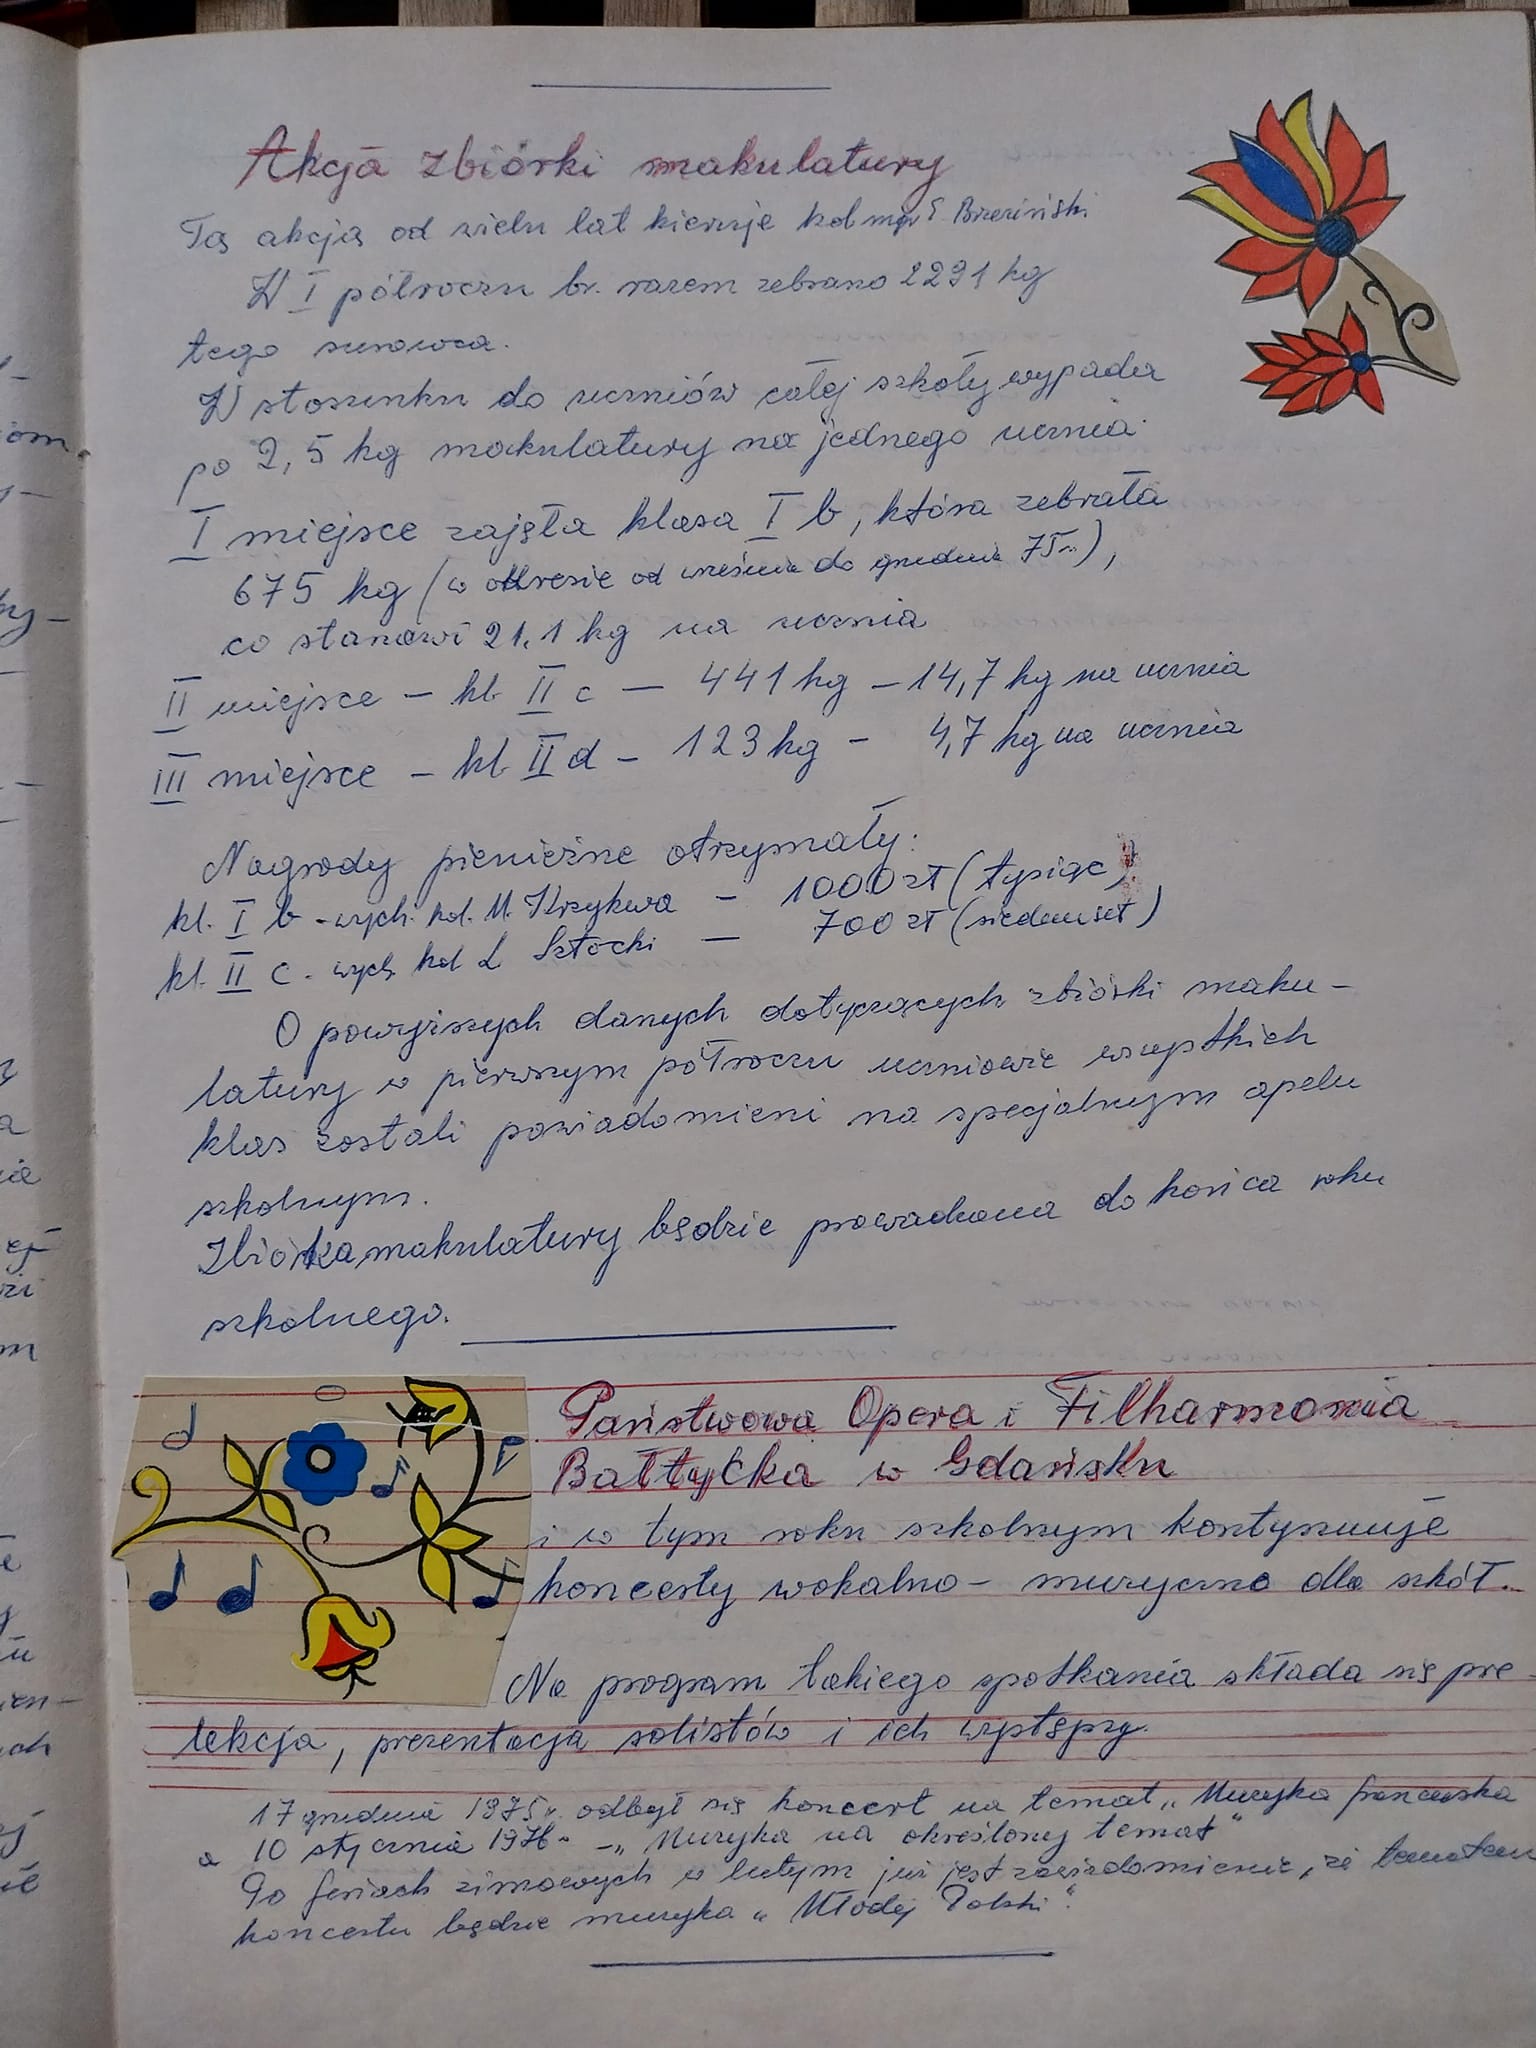 Akcja zbiórki makulatury
Tą akcją od wielu lat kieruje kol mgr E. Brzeziński
W I półroczu br. razem zebrano 2291 kg
tego surowca.
W stosunku do uczniów całej szkoły wypada
po 2,5 kg makulatury na jednego ucznia.
I miejsce zajęła klasa I b, która zebrała
675 kg (w okresie od września do grudnia 75r.),
co stanowi 21,1 kg na ucznia
II miejsce – kl. II c – 441 kg – 14,7 kg na ucznia
III miejsce – kl. II d – 123 kg – 4,7 kg na ucznia
Nagrody pieniężne otrzymały:
kl. I b - wych. kol. M. Krzykwa – 1000 zł (tysiąc)
kl. II c - wych. kol. L. Sztocki – 700 zł (siedemset)
O powyższych danych dotyczących zbiórki maku-
latury w pierwszym półroczu uczniowie wszystkich
klas zostali powiadomieni na specjalnym apelu
szkolnym.
Zbiórka makulatury będzie prowadzona do końca roku
szkolnego.
Państwowa Opera i Filharmonia
Bałtycka w Gdańsku
i w tym roku szkolnym kontynuuje
koncerty wokalno – muzyczne dla szkół.
Na program takiego spotkania składa się pre-
lekcja, prezentacja solistów i ich występy.
17 grudnia 1975r. odbył się koncert na temat „Muzyka francuska
a 10 stycznia 1976r. – „Muzyka na określony temat"
Po feriach zimowych w lutym już jest zawiadomienie, że tematem
koncertu będzie muzyka „Młodej Polski".